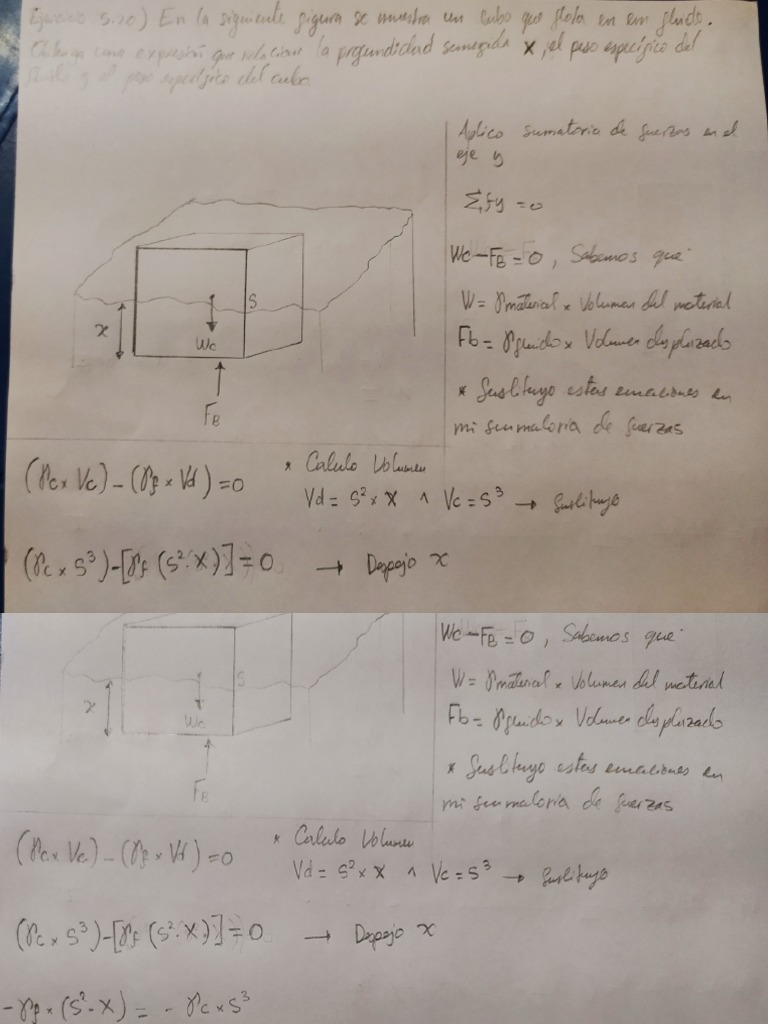 Ejercicio 5.20) En la siguiente figura se muestra un cubo que flota en un fluido.
Obtenga una expresión que relacione la profundidad sumergida x, el peso específico del
fluido y el peso específico del cubo.
Aplico sumatoria de fuerzas en el
eje y
Σfy = 0
Wc - FB = 0, Sabemos que
W = γmaterial × Volumen del material
Fb = γfluido × Volumen desplazado
* Sustituyo estas ecuaciones en
mi sumatoria de fuerzas
x
S
Wc
FB
(γc × Vc) - (γf × Vd) = 0
* Calculo Volumen
Vd = S² × X ^ Vc = S³ → Sustituyo
(γc × S³) - [γf (S² · X)] = 0 → Despejo x
Wc - FB = 0, Sabemos que
W = γmaterial × Volumen del material
Fb = γfluido × Volumen desplazado
* Sustituyo estas ecuaciones en
mi sumatoria de fuerzas
x
S
Wc
FB
(γc × Vc) - (γf × Vd) = 0
* Calculo Volumen
Vd = S² × X ^ Vc = S³ → Sustituyo
(γc × S³) - [γf (S² · X)] = 0 → Despejo x
-γf × (S² - X) = - γc × S³